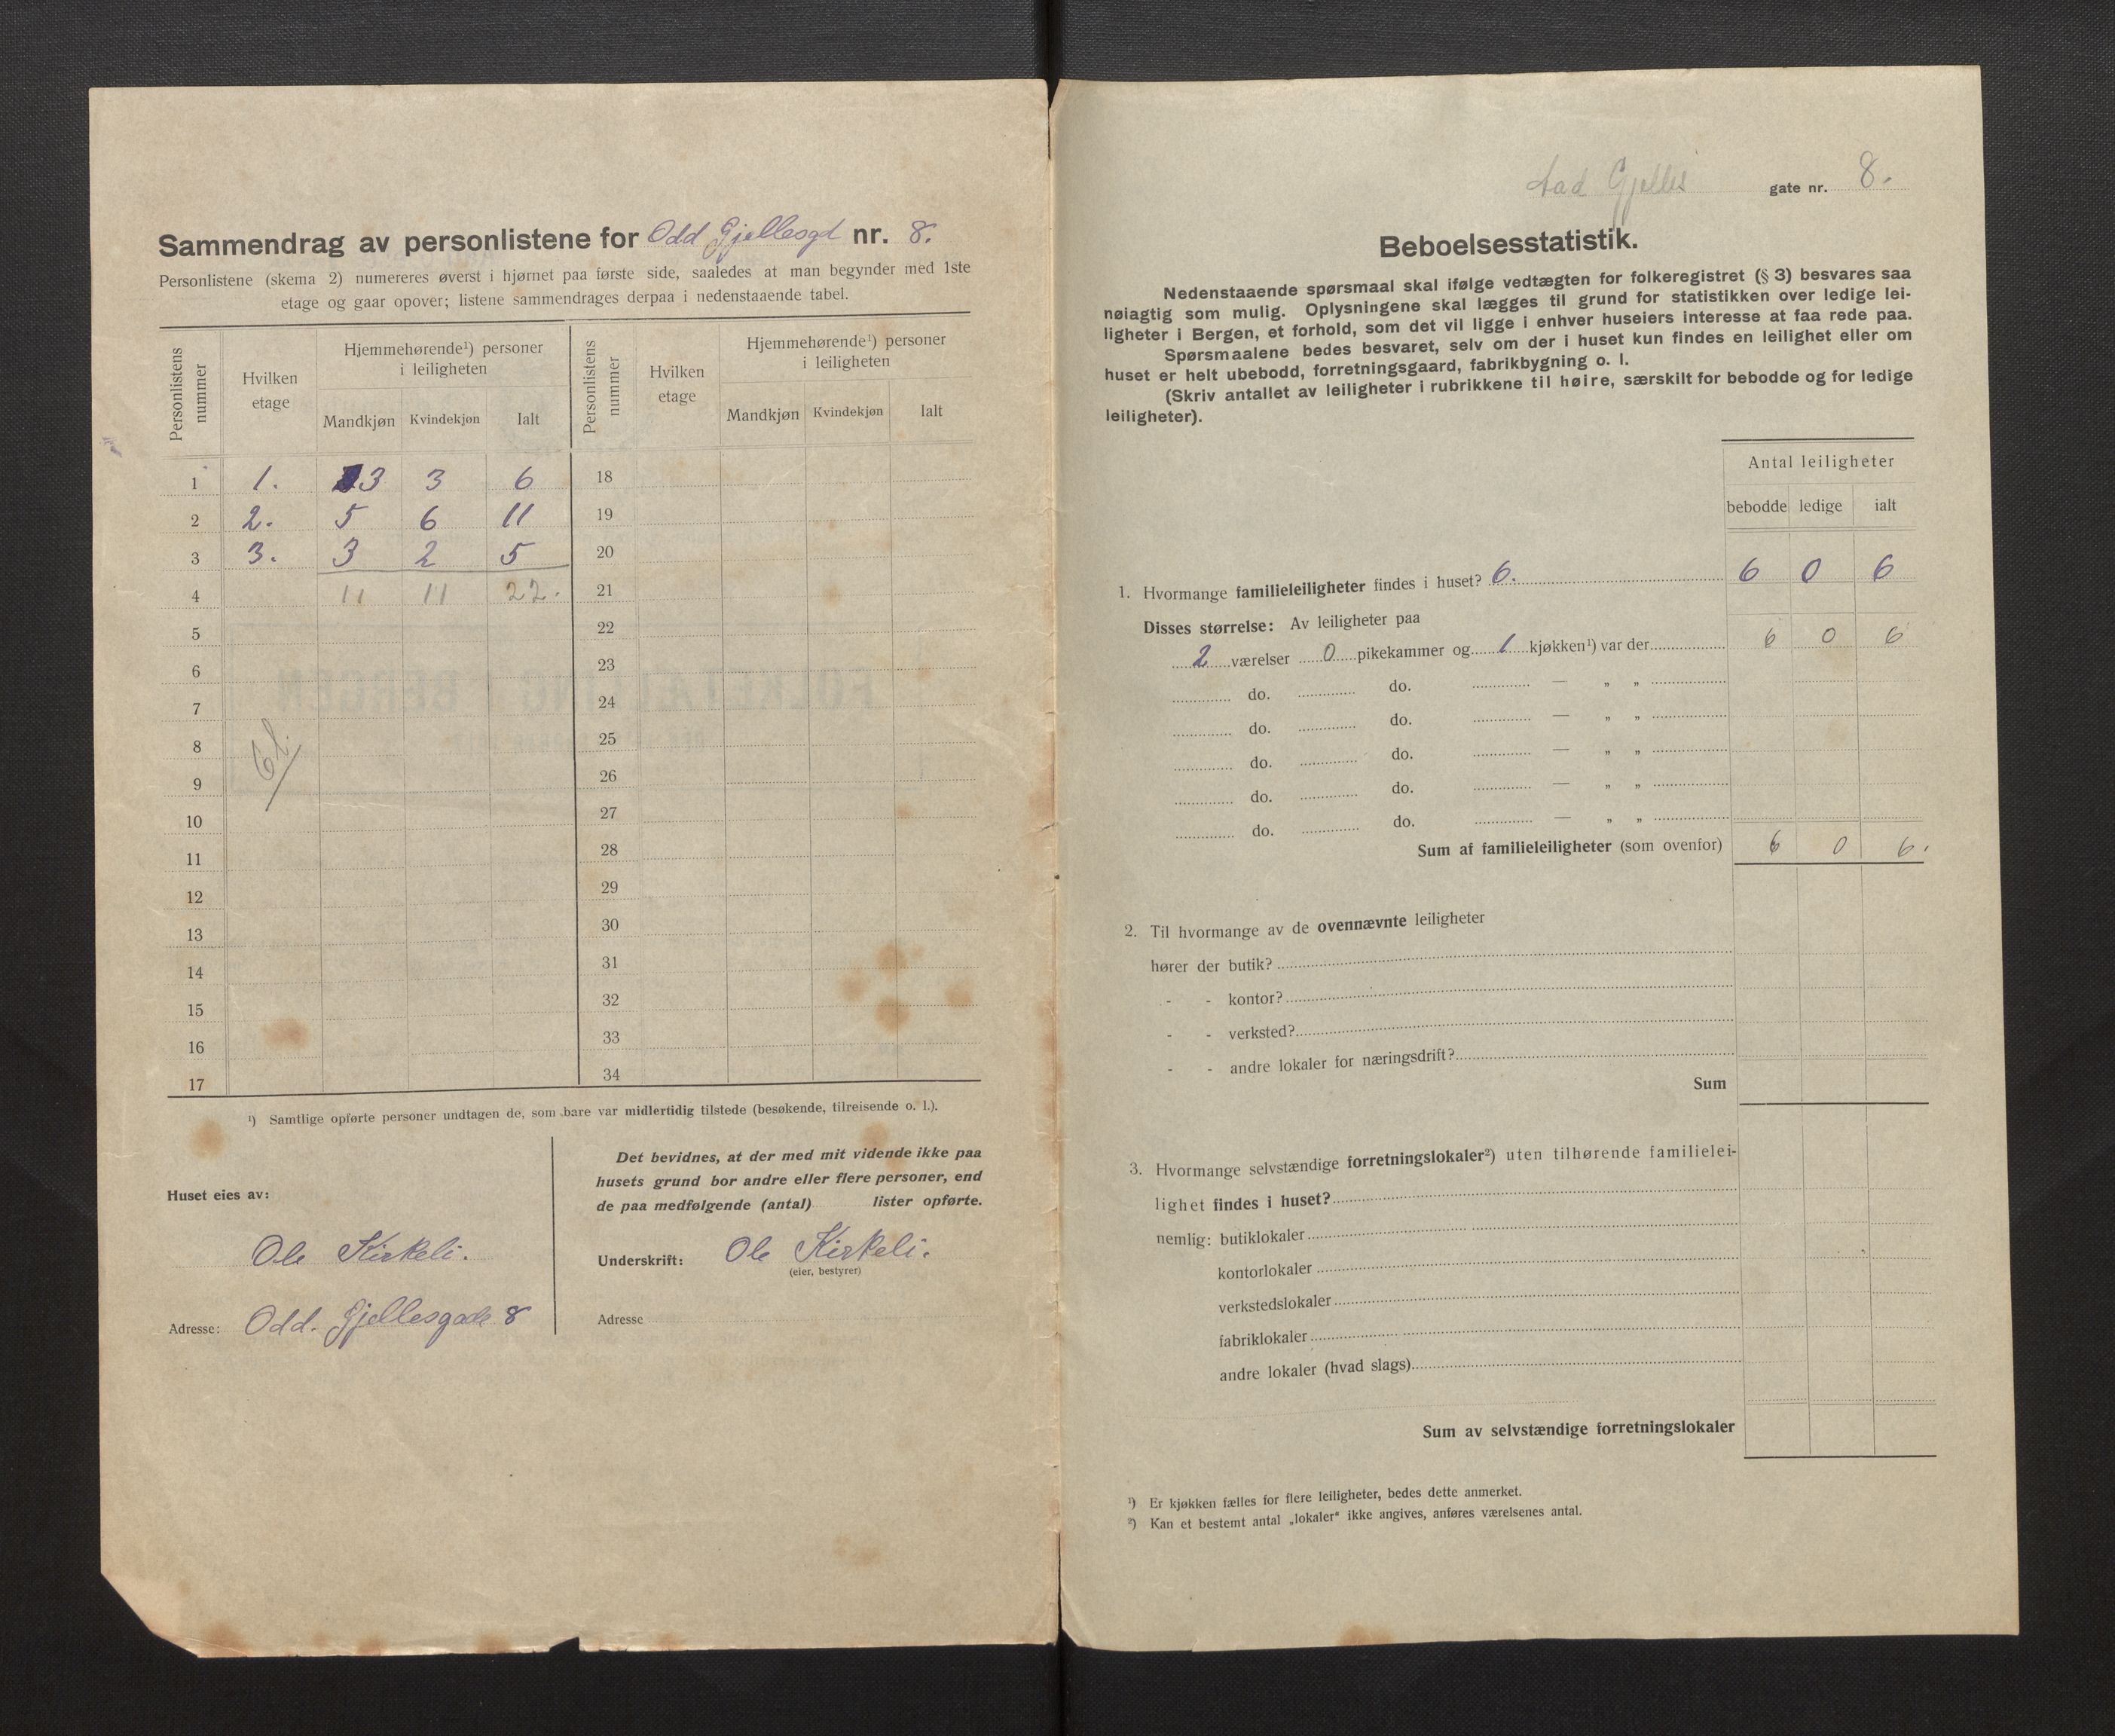 Sammendrag av personlistene for Odd Gjellesgt nr. 8.
Personlistene (skema 2) numereres øverst i hjørnet paa første side, saaledes at man begynder med 1ste
etage og gaar opover; listene sammendrages derpaa i nedenstaaende tabel.
Personlistens nummer
Hvilken etage
Hjemmehørende¹) personer i leiligheten
Mandkjøn Kvindekjøn Ialt
Personlistens nummer
Hvilken etage
Hjemmehørende¹) personer i leiligheten
Mandkjøn Kvindekjøn Ialt
1 1. 3 3 6 18
2 2. 5 6 11 19
3 3. 3 2 5 20
4 11 11 22. 21
5 22
6 23
7 24
8 25
9 26
10 27
11 28
12 29
13 30
14 31
15 32
16 33
17 34
¹) Samtlige opførte personer undtagen de, som bare var midlertidig tilstede (besøkende, tilreisende o. l.).
Huset eies av:
Ole Kirkeli.
Adresse: Odd. Gjellesgade 8
Det bevidnes, at der med mit vidende ikke paa
husets grund bor andre eller flere personer, end
de paa medfølgende (antal) lister opførte.
Underskrift: Ole Kirkeli.
(eier, bestyrer)
Adresse
Aad Gjelles gate nr. 8.
Beboelsesstatistik.
Nedenstaaende spørsmaal skal ifølge vedtægten for folkeregistret (§ 3) besvares saa
nøiagtig som mulig. Oplysningene skal lægges til grund for statistikken over ledige lei-
ligheter i Bergen, et forhold, som det vil ligge i enhver huseiers interesse at faa rede paa.
Spørsmaalene bedes besvaret, selv om der i huset kun findes en leilighet eller om
huset er helt ubebodd, forretningsgaard, fabrikbygning o. l.
(Skriv antallet av leiligheter i rubrikkene til høire, særskilt for bebodde og for ledige
leiligheter).
Antal leiligheter
bebodde ledige ialt
1. Hvormange familieleiligheter findes i huset? 6. 6 0 6
Disses størrelse: Av leiligheter paa
2 værelser 0 pikekammer og 1 kjøkken¹) var der 6 0 6
do. do. — „ „
do. do. — „ „
do. do. — „ „
do. do. — „ „
do. do. — „ „
Sum af familieleiligheter (som ovenfor) 6 0 6.
2. Til hvormange av de ovennævnte leiligheter
hører der butik?
- - kontor?
- - verksted?
- - andre lokaler for næringsdrift?
Sum
3. Hvormange selvstændige forretningslokaler²) uten tilhørende familielei-
lighet findes i huset?
nemlig: butiklokaler
kontorlokaler
verkstedslokaler
fabriklokaler
andre lokaler (hvad slags)
Sum av selvstændige forretningslokaler
¹) Er kjøkken fælles for flere leiligheter, bedes dette anmerket.
²) Kan et bestemt antal „lokaler“ ikke angives, anføres værelsenes antal.